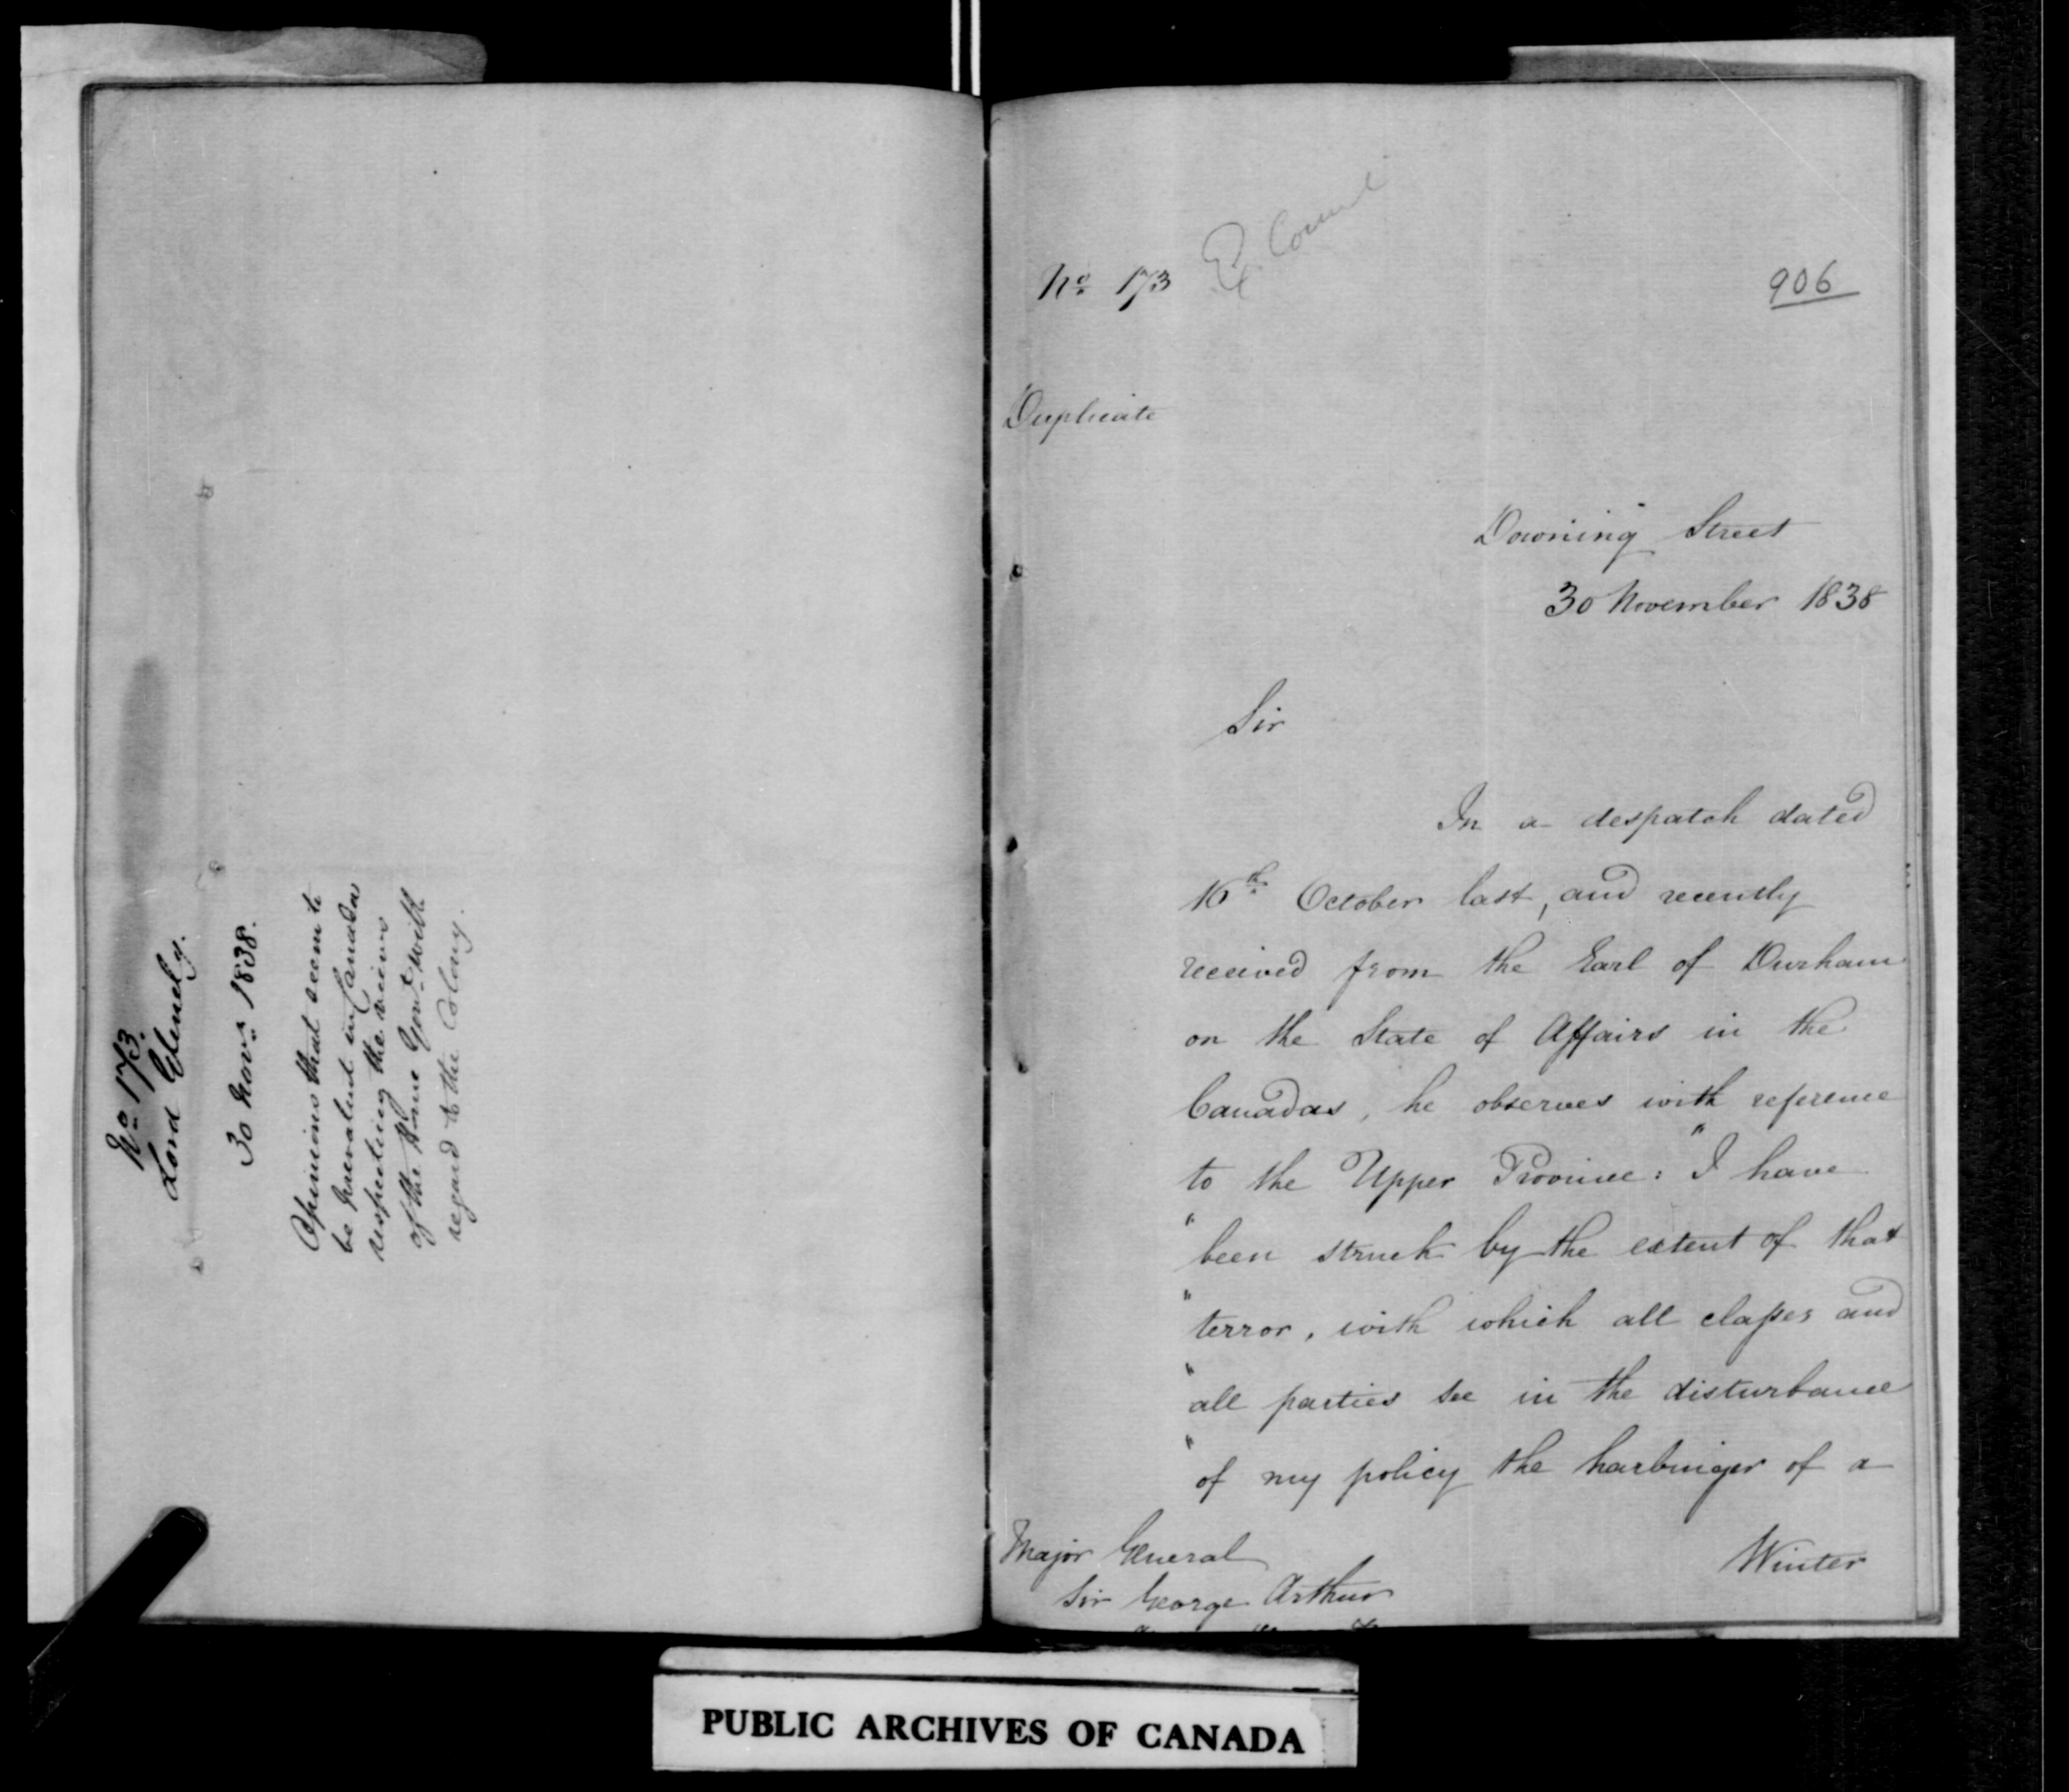 No. 173.
Lord Glenelg.
30 Novr. 1838.
Opinions that seem to
be prevalent in Canada
respecting the views
of the Home Govt. with
regard to the Colony.
No. 173
Ex Council
906
Duplicate
Downing Street
30 November 1838
Sir
In a despatch dated
16th October last, and recently
received from the Earl of Durham
on the State of Affairs in the
Canadas, he observes with reference
to the Upper Province: "I have
" been struck by the extent of that
" terror, with which all classes and
" all parties see in the disturbance
" of my policy the harbinger of a
Winter
Major General
Sir George Arthur
PUBLIC ARCHIVES OF CANADA